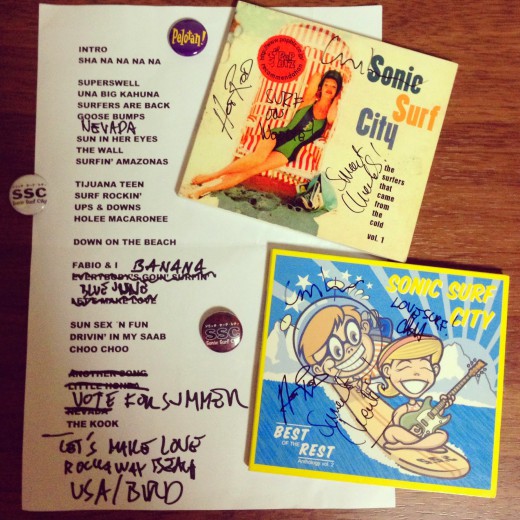 Pelotan!
INTRO
SHA NA NA NA NA
SUPERSWELL
UNA BIG KAHUNA
SURFERS ARE BACK
GOOSE BUMPS
NEVADA
SUN IN HER EYES
THE WALL
SURFIN' AMAZONAS
TIJUANA TEEN
SURF ROCKIN'
UPS & DOWNS
HOLEE MACARONEE
DOWN ON THE BEACH
FABIO & I BANANA
EVERYBODY'S GOIN' SURFIN'
BLUE JUNO
LET'S MAKE LOVE
SUN SEX 'N FUN
DRIVIN' IN MY SAAB
CHOO CHOO
ANOTHER SONG
LITTLE HONDA
VOTE FOR SUMMER
NEVADA
THE KOOK
LET'S MAKE LOVE
ROCKAWAY BEACH
USA/BIRD
SSC
Sonic Surf City
SSC
Sonic Surf City
Sonic
Surf
City
the
surfers
that
came
from
the
cold
vol. 1
Hot Rod
SURF
Sweet
SONIC SURF
CITY
LOVE SURF
City
Hot Rod
BEST
OF THE
REST
Anthology vol. 2